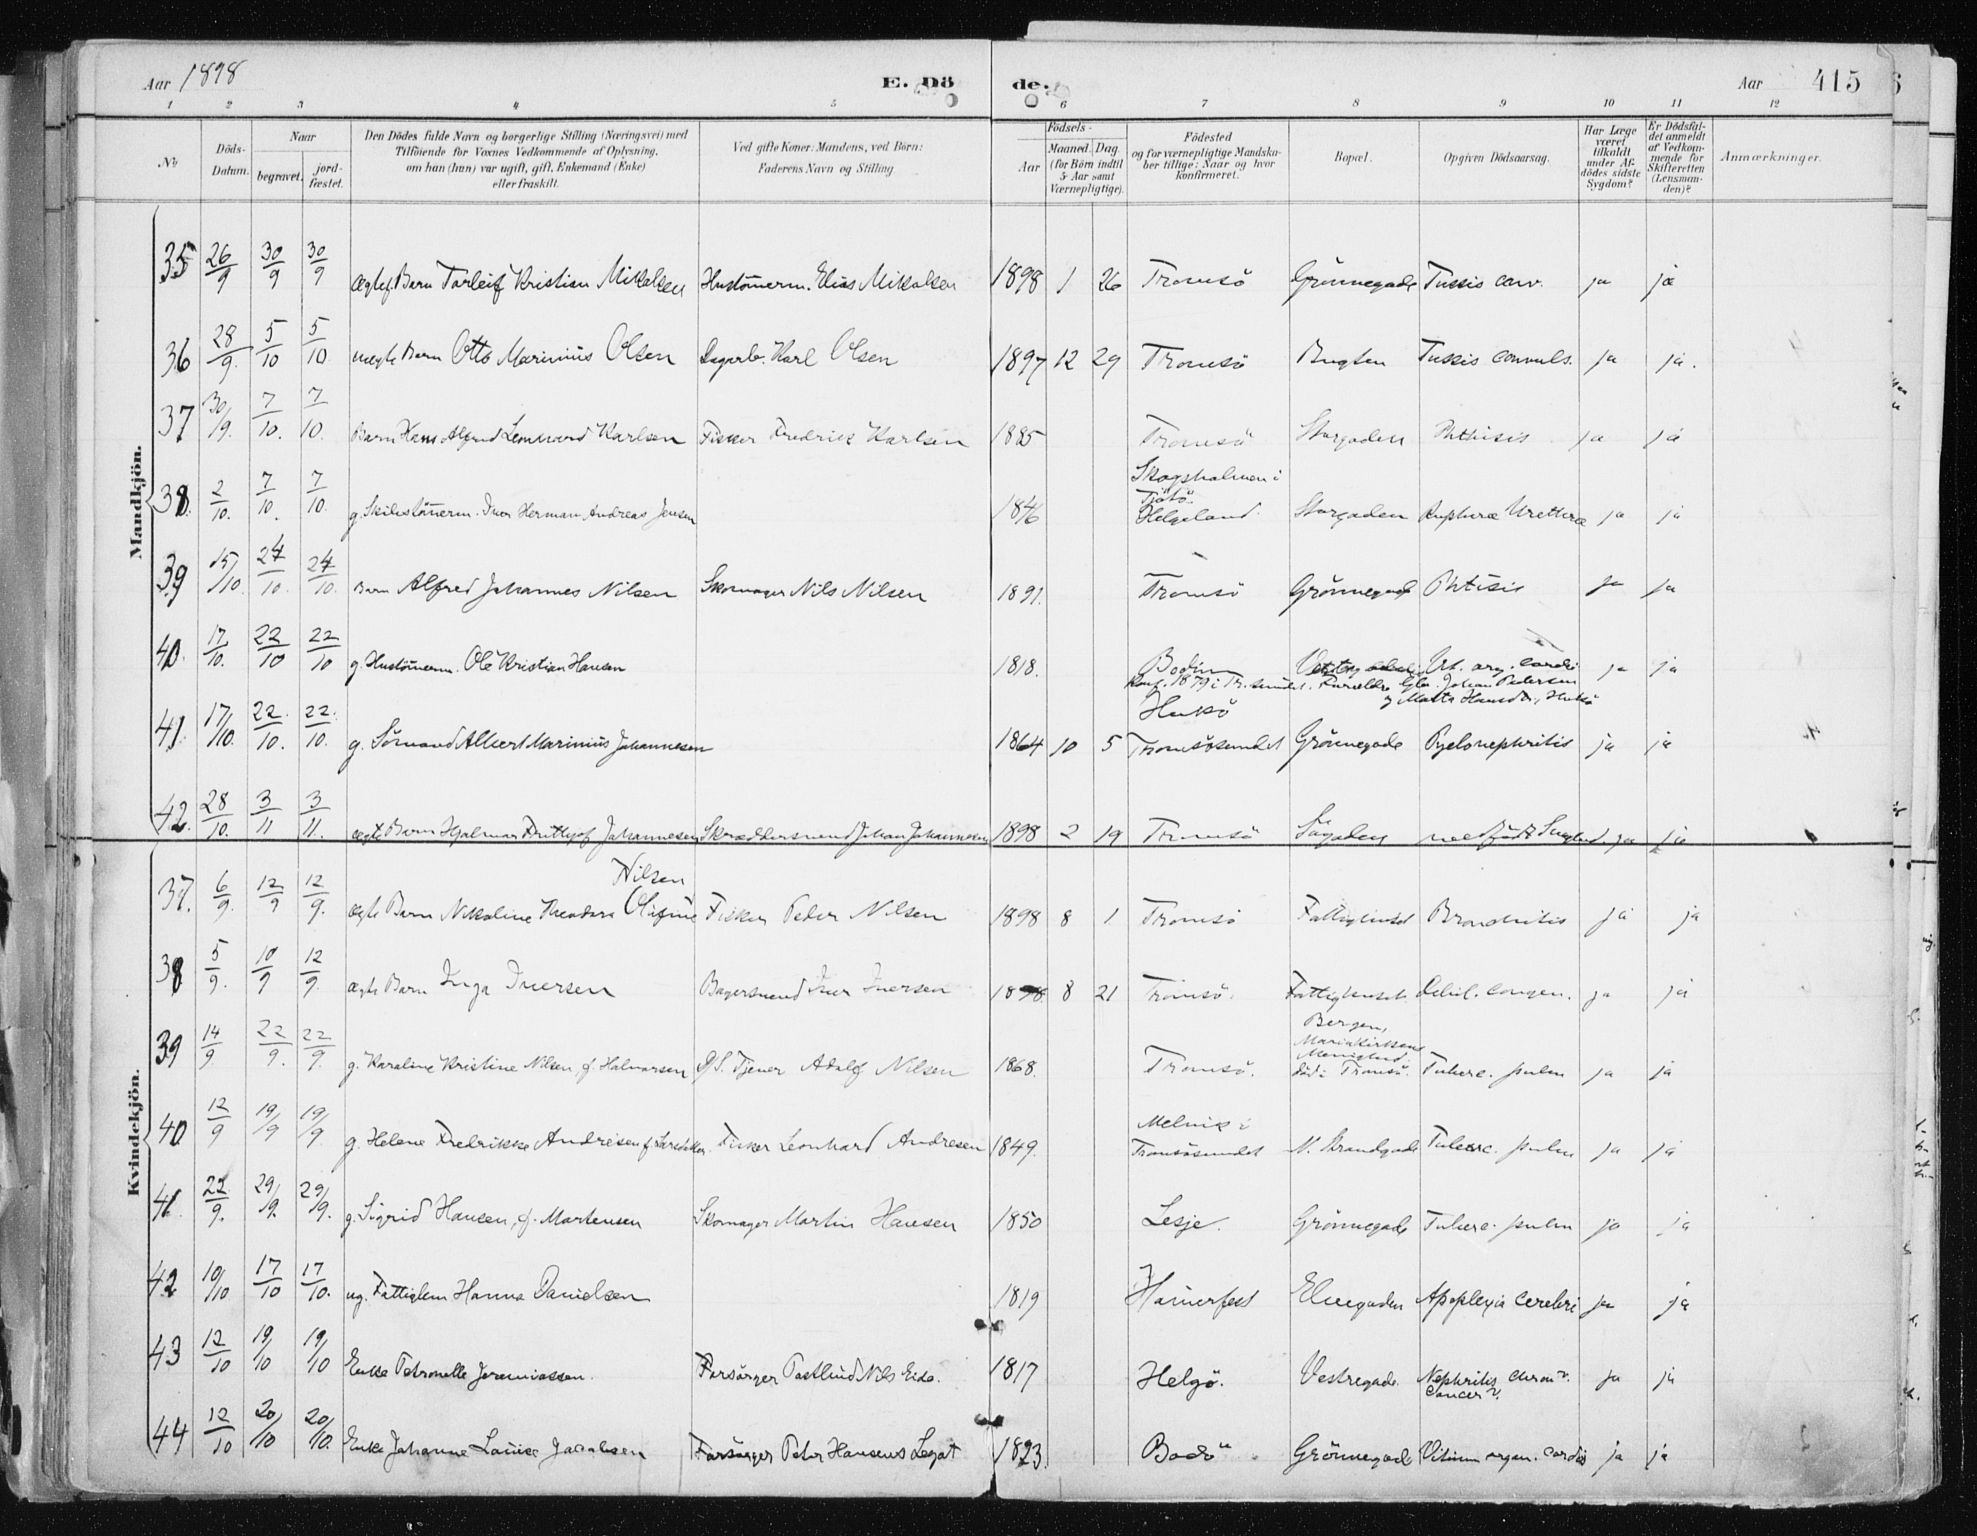 Aar 1898 E. Dö de. Aar 415
1 2 3 4 5 6 7 8 9 10 11 12
No
Döds-Datum.
Naar
begravet.
jord-fæstet.
Den Dödes fulde Navn og borgerlige Stilling (Næringsvei) med
Tilföiende for Voxnes Vedkommende af Oplysning,
om han (hun) var ugift, gift, Enkemand (Enke)
eller fraskilt.
Ved gifte Koner: Mandens, ved Börn:
Faderens Navn og Stilling
Födsels-
Aar
Maaned. Dag.
(for Börn indtil
5 Aar samt
Værnepligtige).
Födested
og for værnepligtige Mandska-
ber tillige: Naar og hvor
konfirmeret.
Bopæl.
Opgiven Dödsaarsag.
Har Læge
været
tilkaldt
under Af-
dödes sidste
Sygdom?
Er Dödsfal-
det anmeldt
af Vedkom-
mende for
Skifteretten
(Lensman-
den)?
Anmærkninger.
Mandkjön.
35 26/9 30/9 30/9 ægtef. Barn Torleif Kristian Mikalsen Hustömerm. Elias Mikalsen 1898 1 26 Tromsö Grönnegade Tussis conv. ja ja
36 28/9 5/10 5/10 uægte Barn Otto Marinius Olsen Dagarb. Karl Olsen 1897 12 29 Tromsö Bugten Tussis convuls. ja ja.
37 30/9. 7/10. 7/10. Barn Hans Alfred Leonhard Karlsen Fisker Fredrik Karlsen 1885 Tromsö Storgaden Phthisis ja ja
38. 2/10. 7/10. 7/10. g. Skibstömerm. Iver Herman Andreas Jensen 1846 Skogsholmen i
Tjötö
Helgeland. Storgaden Ruptura Urethra ja ja
39 15/10. 24/10. 24/10. Barn Alfred Johannes Nilsen Skomager Nils Nilsen 1891. Tromsö Grönnegade Phtisis ja ja
40. 17/10. 22/10 22/10 g. Hustömerm. Ole Kristian Hansen 1818. Bodin Vit. org. cordis ja ja
Konf. 1879 i Tr.sundet. Forældre Johan Pedersen
og Hansdr.,
41 17/10. 22/10. 22/10. g. Sömand Albert Marinius Johannesen 1864 10 5 Tromsösundet Grönnegade Pyelonephritis ja ja
42. 28/10. 3/11 3/11. ægte Barn Hjalmar Frithjof Johannesen Skræddersvend Johan Johannesen 1898 2 19 Tromsö Sögaden medfödt ja ja
Kvindekjön.
37. 6/9. 12/9 12/9. ægte Barn Nikoline Theodora Olufine Nilsen Fisker Peder Nilsen 1898 8 1 Tromsö Fattighuset Bronchitis ja ja
38 5/9. 10/9 12/9 ægte Barn Inga Iversen Bagersvend Iver Iversen 1898 8 21 Tromsö. Fattighuset Debil. congen. ja ja
39 14/9. 22/9. 22/9. g. Karoline Kristine Nilsen, f. Halvorsen D/S. Tjener Adolf Nilsen 1868. Tromsö. Bergen,
Mariakirkens
Menighed.
död i Tromsö. Tuberc. pulm ja ja
40 12/9 19/9 19/9 g. Helene Fredrikke Andresen Fisker Leonhard Andresen 1849. Melvik i
Tromsösundet N. Strandgade Tuberc. pulm ja ja
41. 22/9. 29/9. 29/9. g. Sigrid Hansen, f. Martensen Skomager Martin Hansen 1850 Lesje. Grönnegade Tuberc. pulm ja ja
42 10/10 17/10 17/10. ug. Fattiglem Hanna Danielsen 1819 Hamerfest Elvegaden Apoplexia cerebri ja ja
43 12/10 19/10 19/10 Enke Petronelle Jeremiassen. Forsörger Nils Eide. 1817 Helgö. Vestregade. Nephritis chron?
Cancer?. ja ja
44 12/10 20/10 20/10. Enke Johanne Louise Jacobsen Forsörger Peter Hansens Legat 1823. Bodö Grönnegade Vitium organ. cordis ja ja